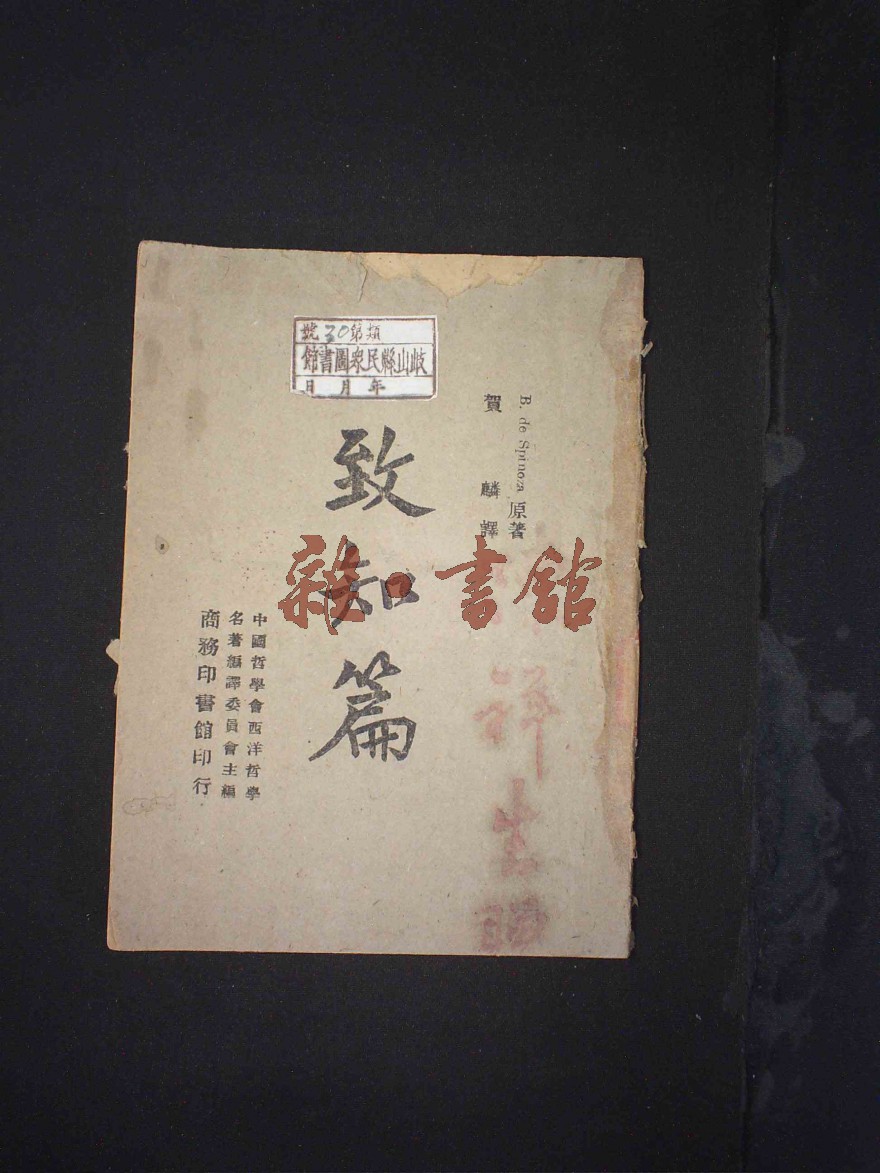 號30第類
岐山縣民衆圖書館
年月日
B. de Spinoza 原著
賀麟譯
致知篇
中國哲學會西洋哲學
名著編譯委員會主編
商務印書館印行
雜·書館